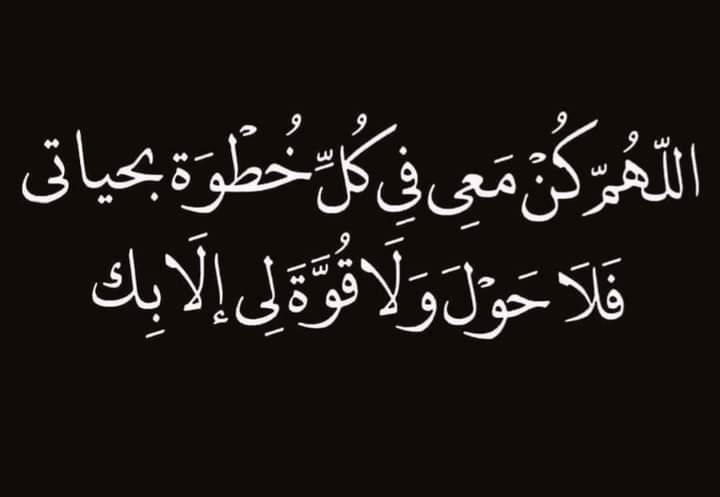 اللّهُمّ كُنْ مَعِي فِي كُلِّ خُطْوَة بحياتى
فَلَا حَوْلَ وَلَا قُوَّةَ لِى إلَا بِك